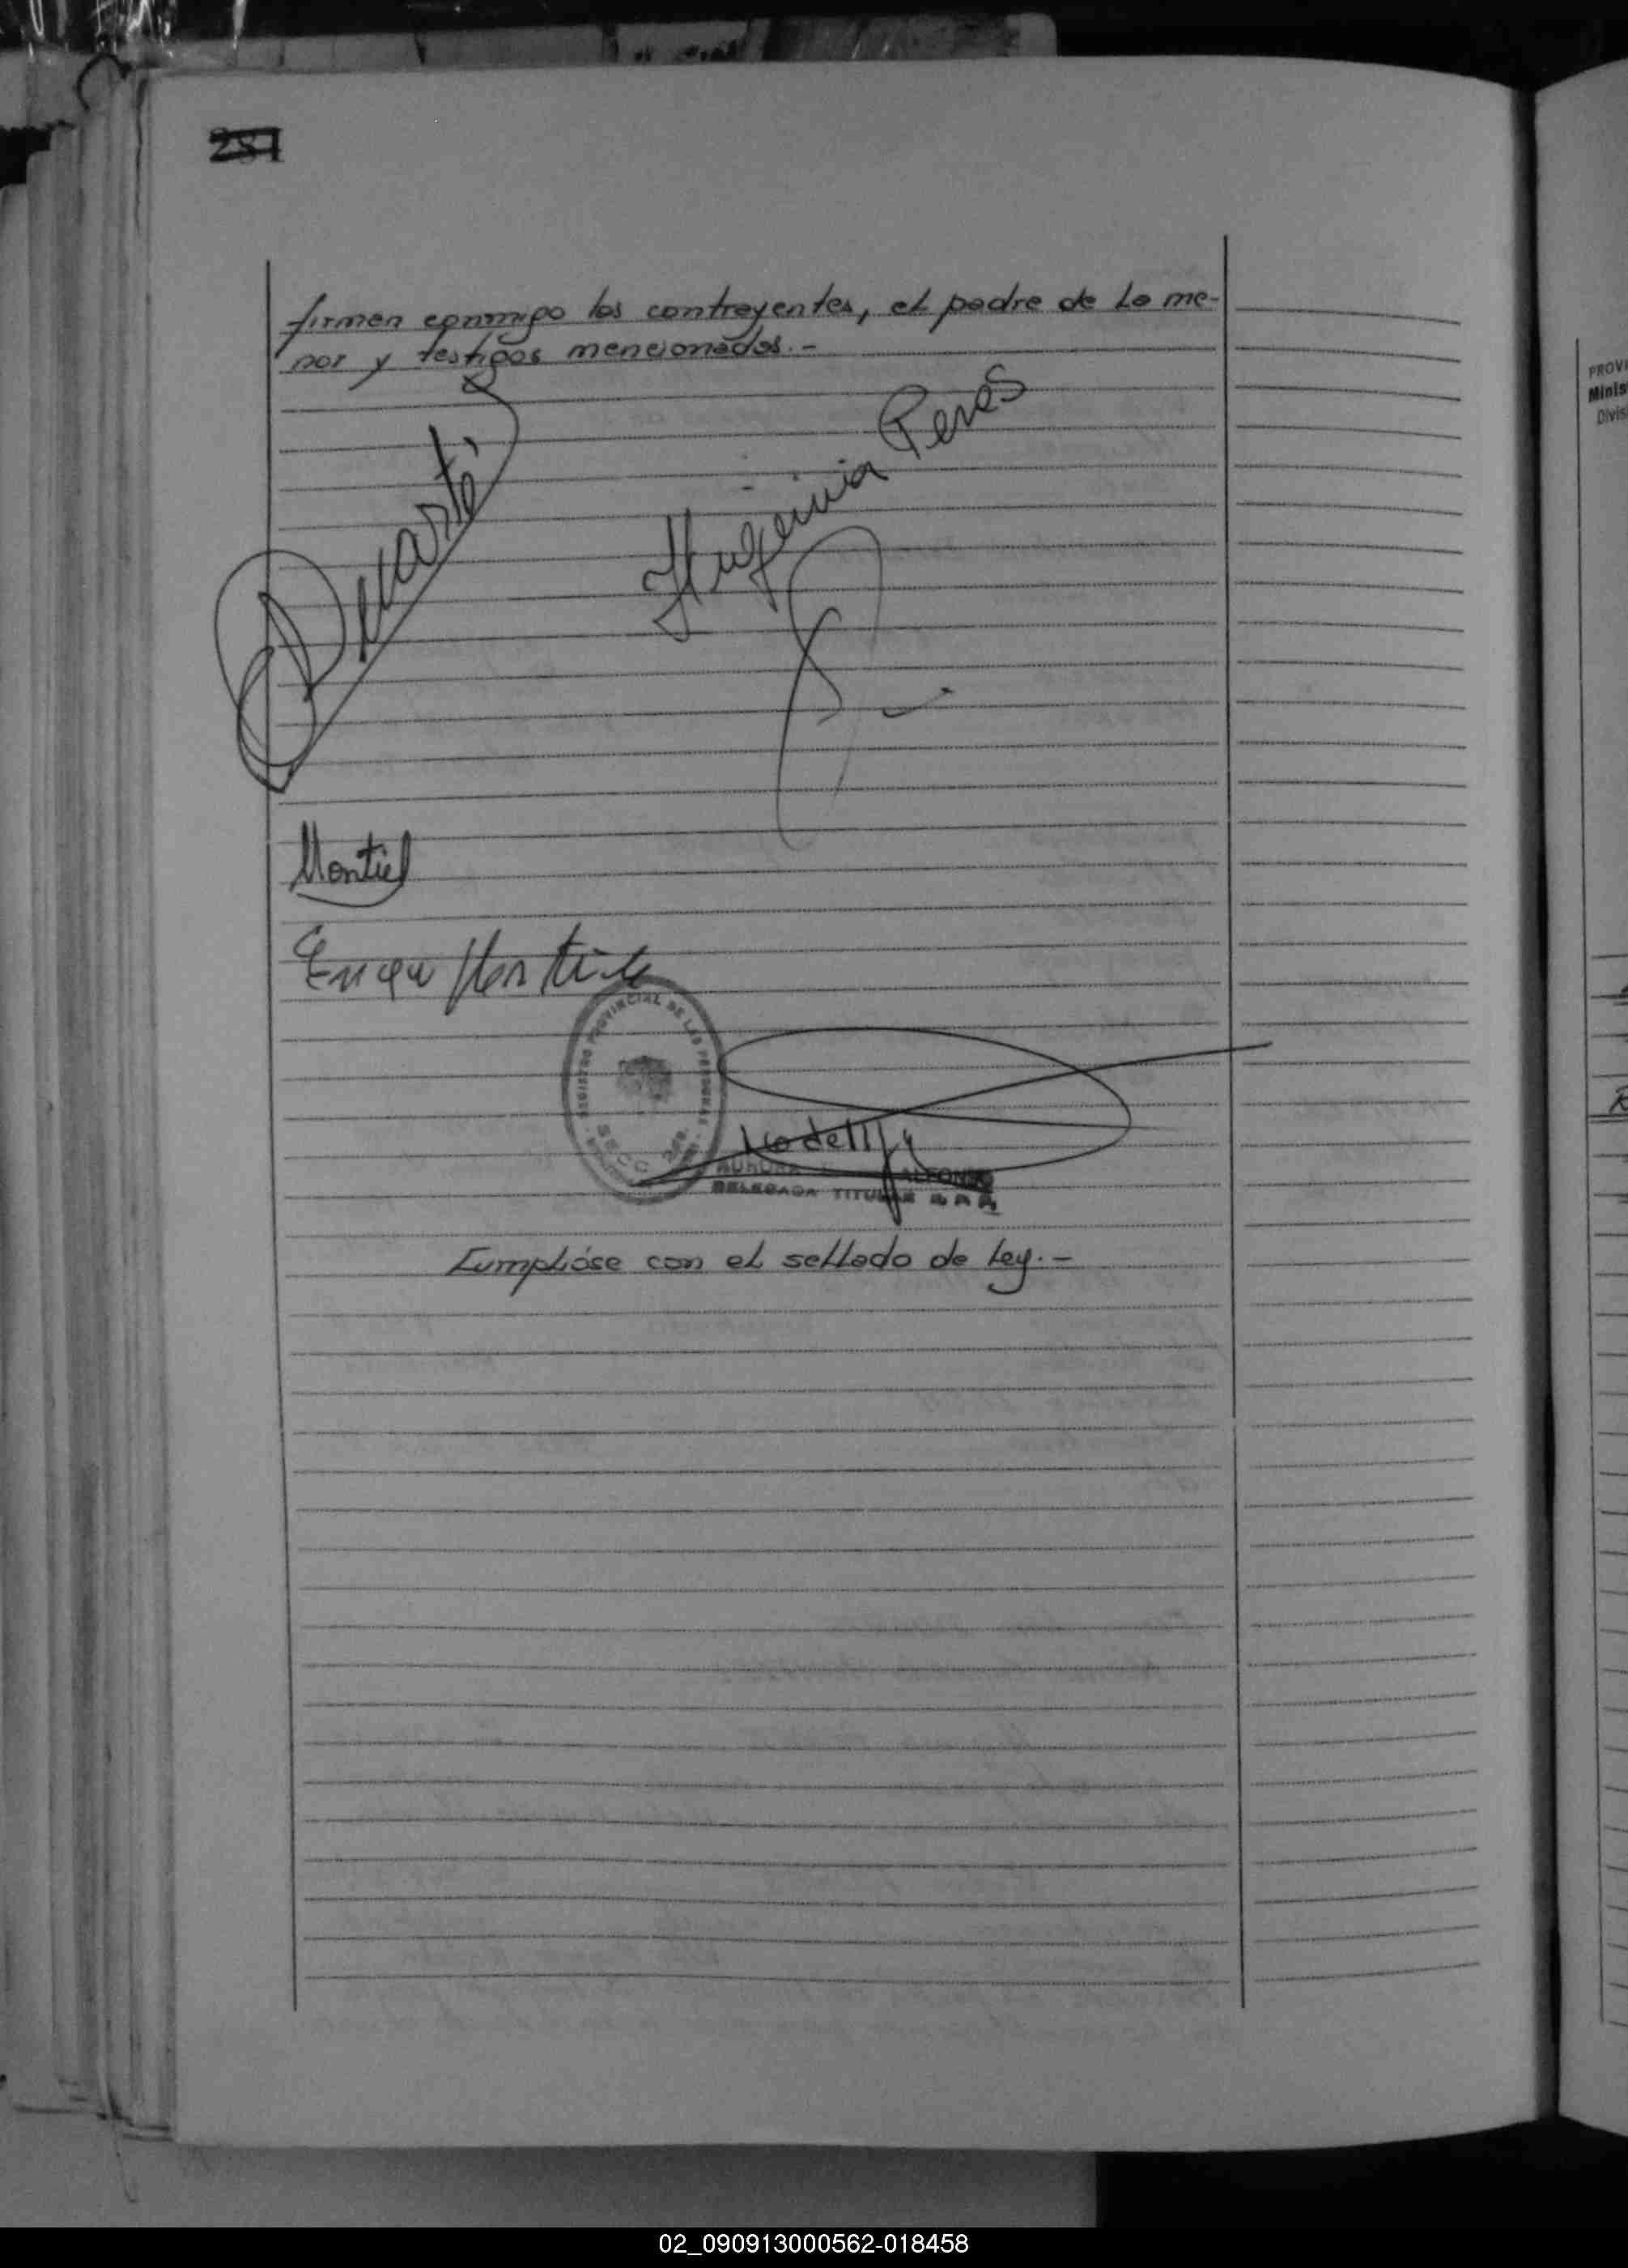 257
firman conmigo los contrayentes, el padre de la me-
nor y testigos mencionados.-
Higinia Peres
Montiel
REGISTRO PROVINCIAL DE LAS PERSONAS
SECC
AURORA ALFONSO
DELEGADA TITULAR
Cumplióse con el sellado de Ley.-
PROVI
Minis
Divis
02_090913000562-018458